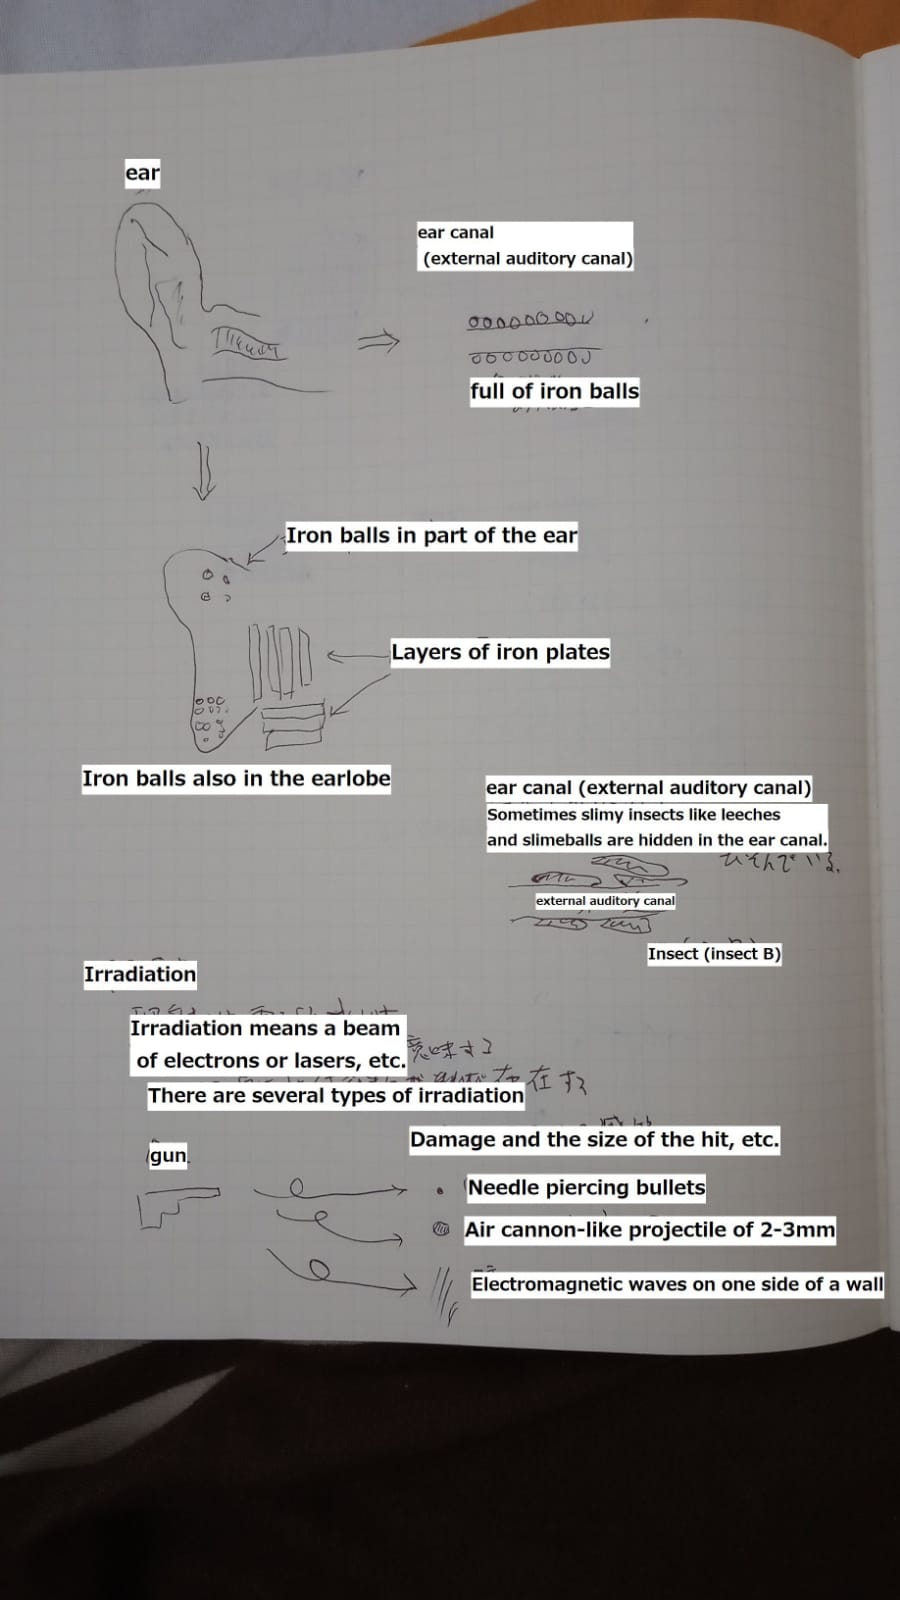 ear
ear canal
(external auditory canal)
full of iron balls
Iron balls in part of the ear
Layers of iron plates
Iron balls also in the earlobe
ear canal (external auditory canal)
Sometimes slimy insects like leeches
and slimeballs are hidden in the ear canal.
ひそんでいる.
external auditory canal
Insect (insect B)
Irradiation
Irradiation means a beam
of electrons or lasers, etc.
意味する
There are several types of irradiation
存在する
Damage and the size of the hit, etc.
gun
Needle piercing bullets
Air cannon-like projectile of 2-3mm
Electromagnetic waves on one side of a wall